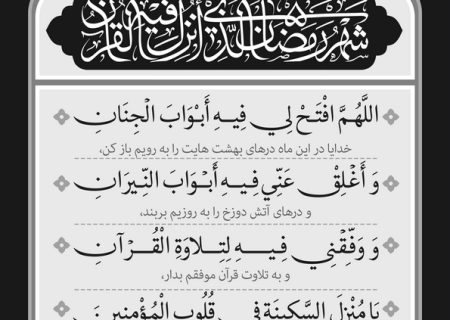 شهر رمضان الذي أنزل فيه القرآن
اللَّهُمَّ افْتَحْ لِي فِيهِ أَبْوَابَ الْجِنَانِ
خدایا در این ماه درهای بهشت هایت را به رویم باز کن،
وَ أَغْلِقْ عَنِّي فِيهِ أَبْوَابَ النِّيرَانِ
و درهای آتش دوزخ را به روزیم بربند،
وَ وَفِّقْنِي فِيهِ لِتِلَاوَةِ الْقُرْآنِ
و به تلاوت قرآن موفقم بدار،
يَا مُنْزِلَ السَّكِينَةِ فِي قُلُوبِ الْمُؤْمِنِينَ